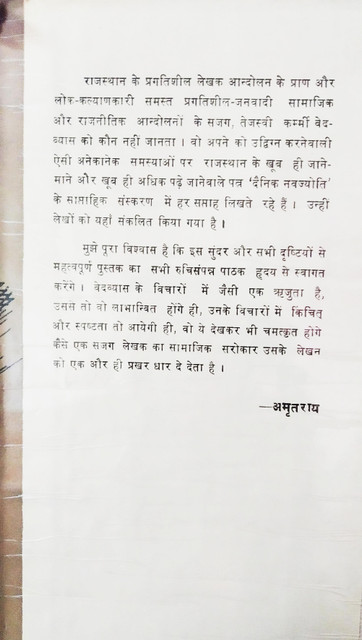 राजस्थान के प्रगतिशील लेखक आन्दोलन के प्राण और
लोक-कल्याणकारी समस्त प्रगतिशील-जनवादी सामाजिक
और राजनीतिक आन्दोलनों के सजग, तेजस्वी कर्म्मी वेद-
व्यास को कौन नहीं जानता । वो अपने को उद्विग्न करनेवाली
ऐसी अनेकानेक समस्याओं पर राजस्थान के खूब ही जाने-
माने और खूब ही अधिक पढ़े जानेवाले पत्र 'दैनिक नवज्योति'
के साप्ताहिक संस्करण में हर सप्ताह लिखते रहे हैं । उन्हीं
लेखों को यहाँ संकलित किया गया है ।
मुझे पूरा विश्वास है कि इस सुंदर और सभी दृष्टियों से
महत्वपूर्ण पुस्तक का सभी रुचिसंपन्न पाठक हृदय से स्वागत
करेंगे । वेदव्यास के विचारों में जैसी एक ऋजुता है,
उससे तो वो लाभान्वित होंगे ही, उनके विचारों में किंचित्
और स्पष्टता तो आयेगी ही, वो ये देखकर भी चमत्कृत होंगे
कैसे एक सजग लेखक का सामाजिक सरोकार उसके लेखन
को एक और ही प्रखर धार दे देता है ।
—अमृतराय